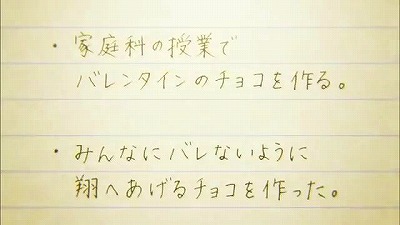 ・家庭科の授業で
バレンタインのチョコを作る。
・みんなにバレないように
翔へあげるチョコを作った。